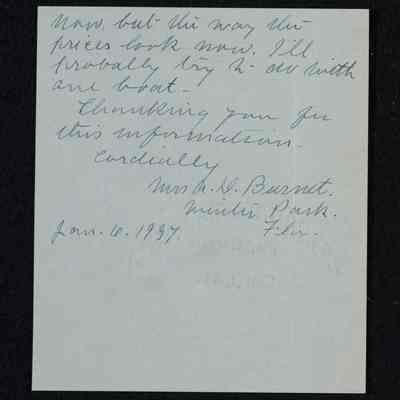 now, but the way the
prices look now. I'll
probably try to do with
one boat.
Thanking you for
this information.
Cordially
Mrs A. D. Burnet.
Winter Park.
Jan. 6. 1937. Fla.